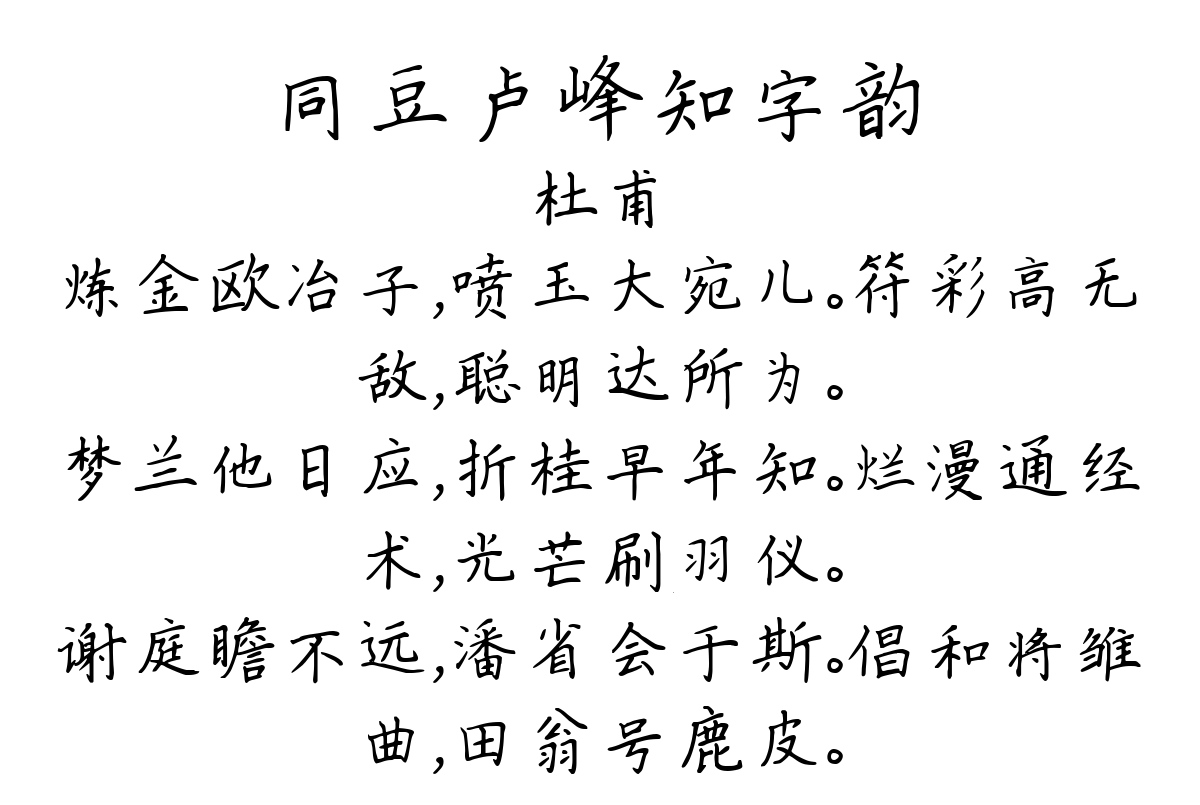 同豆卢峰知字韵
杜甫
炼金欧冶子,喷玉大宛儿。符彩高无
敌,聪明达所为。
梦兰他日应,折桂早年知。烂漫通经
术,光芒刷羽仪。
谢庭瞻不远,潘省会于斯。倡和将雏
曲,田翁号鹿皮。